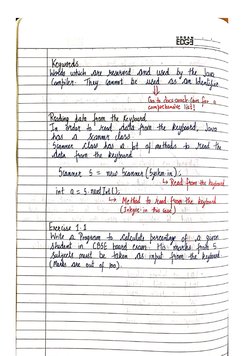 Keywords
Words which are reserved and used by the Java
Compiler. They cannot be used as an Identifier
Go to docs.oracle.com for a
comprehensive list!
Reading data from the Keyboard
In order to read data from the keyboard, Java
has a Scanner class.
Scanner class has a lot of methods to read the
data from the keyboard
Scanner S = new Scanner (System.in);
Read from the keyboard
int a = S.nextInt();
Method to read from the keyboard
(Integer in this case)
Exercise 1.1
Write a Program to calculate percentage of a given
student in CBSE board exam. His marks from 5
subjects must be taken as input from the keyboard
(Marks are out of 100).